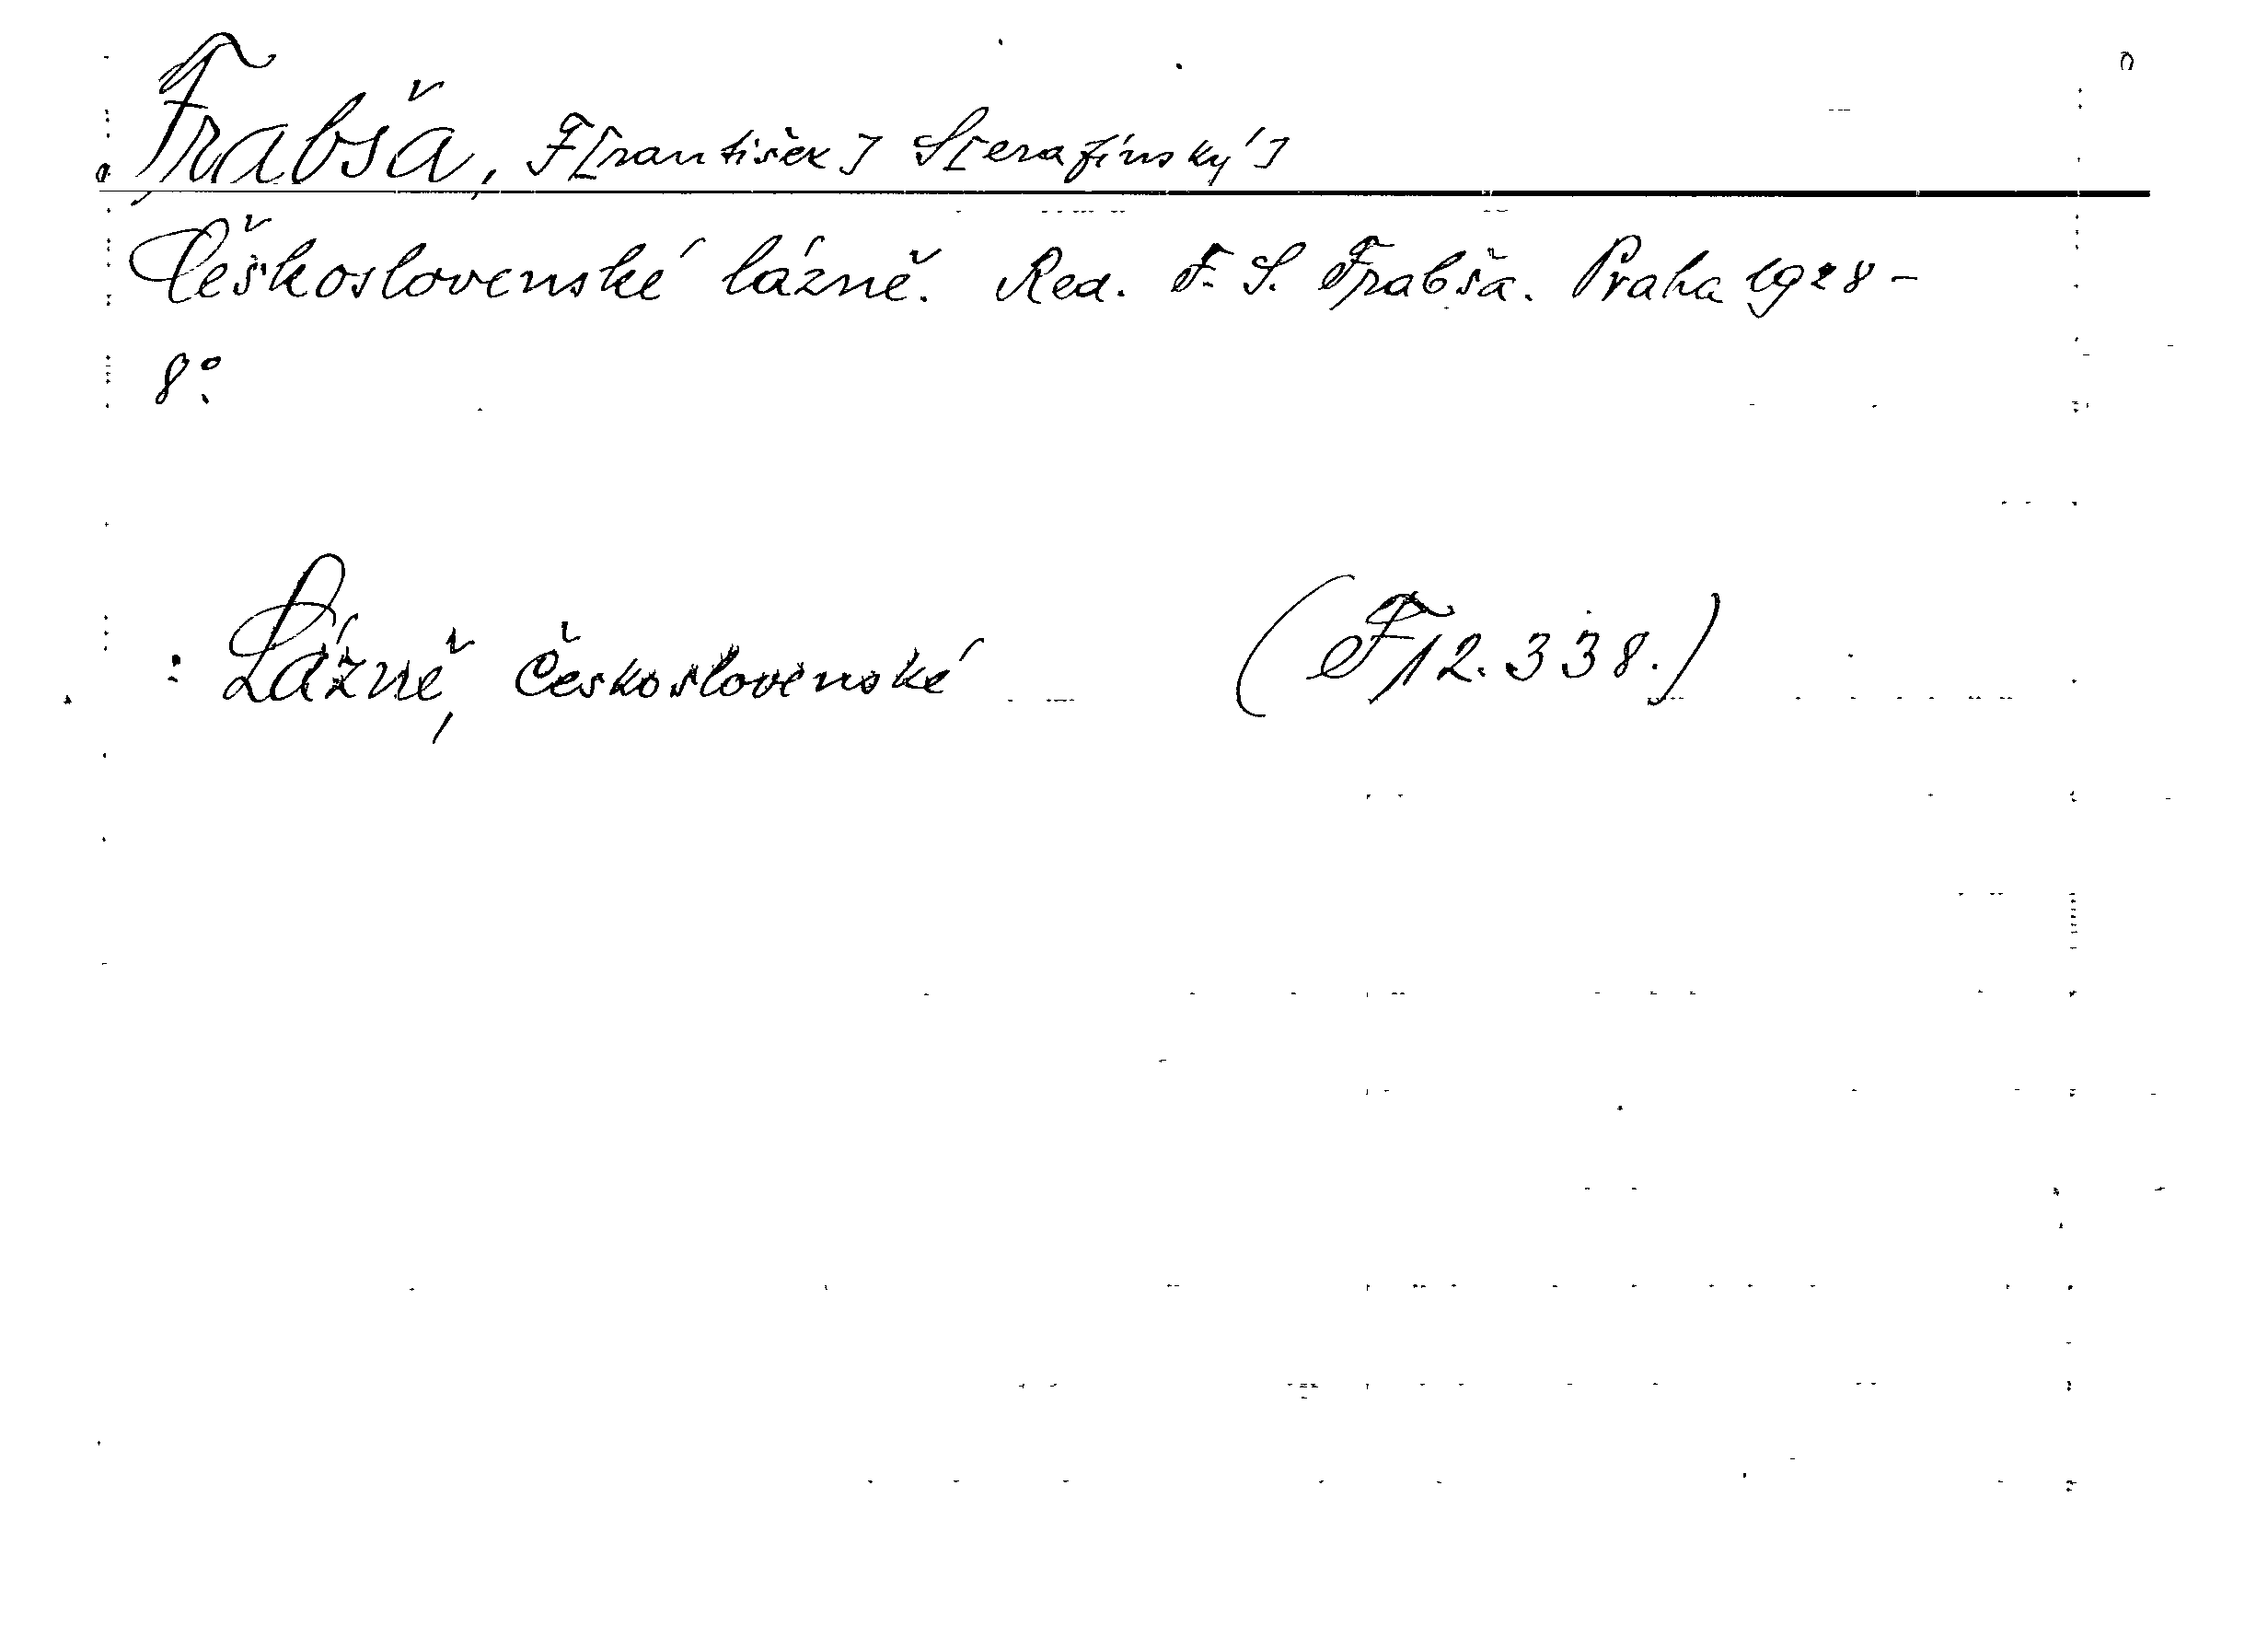 Frabša, F[rantišek] S[erafínský]
Československé lázně. Red. F. S. Frabša. Praha 1928-
8°.
: Lázně, československé (F 12.338.)